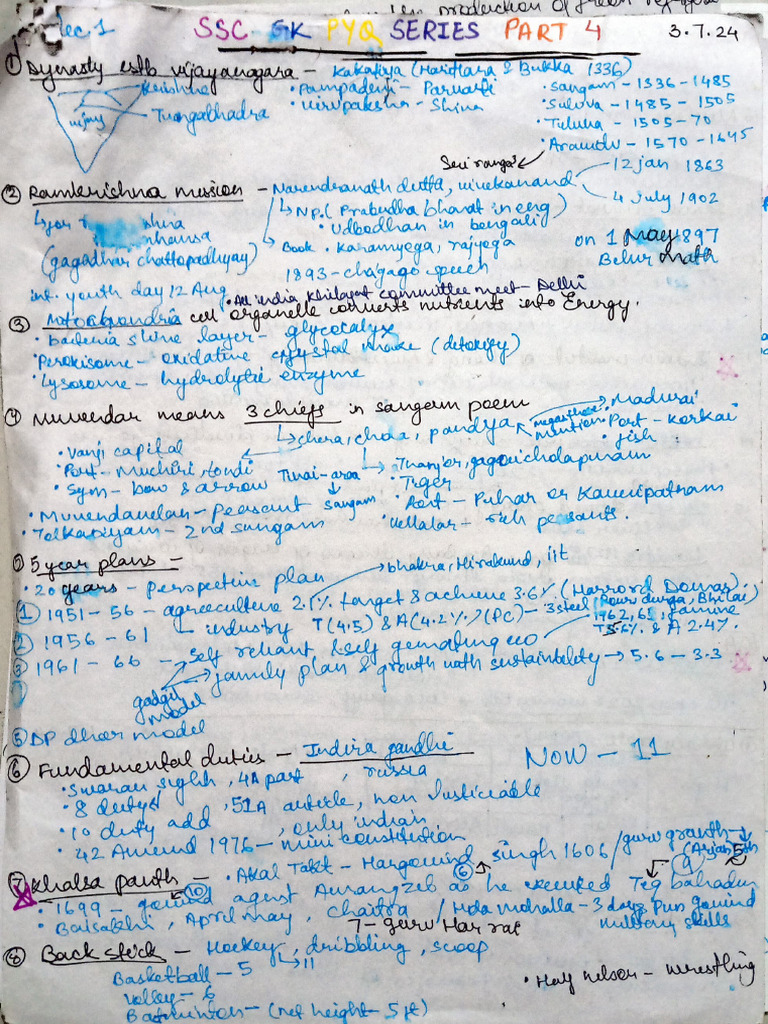 the production of green
Lec. 1 SSC GK PYQ SERIES PART 4 3.7.24
① Dynasty estb vijayanagara – Kakatiya (Harihara & Bukka 1336)
Krishna
vijay
Tungabhadra
• Pampadevi – Parvati
• virupaksha – Shiva
• Sangam – 1336 – 1485
• Suluva – 1485 – 1505
• Tuluva – 1505 – 70
• Aravidu – 1570 – 1645
Seri ranga3
② Ramkrishna mission – Narendranath dutta, vivekanand
12 jan 1863
4 July 1902
NP. (Prabudha bharat in eng)
• Udbodhan in bengali
(gagadhar chattopadhyay)
Book • Karamyoga, rajyoga
1893 – chigago speech
on 1 May 1897
Belur math
int. youth day 12 Aug
• All india Khilafat committee meet – Delhi
③ Mitochondria cell organelle converts nutrients into Energy.
• bacteria slime layer – glycocalyx
• Peroxisome – oxidative crystal make (detoxify)
• Lysosome – hydrolytic enzyme
④ Muvendar means 3 chiefs in sangam poem
chera, chola, pandya
megasthenes mention
• Madurai
• Port – Korkai
• fish
• Vanji capital
Port – Muchiri, tondi
• Sym – bow & arrow
Tinai – area
sangam
• Thanjor, gagaicholapuram
• Tiger
• Port – Puhar or Kaveripatnam
• Vellalar – rich peasants.
• Muvendavelan – peasant
• Tolkapiyam – 2nd sangam
⑤ 5 year plans –
• 20 years – perspective plan
bhakra, Hirakund, iit
① 1951 – 56 – agreeculture 2.1% target & achieve 3.6% (Harrord Domar).
② 1956 – 61 – industry T(4.5) & A(4.2%) (PC) – 3 steel (Rour, durga, Bhilai)
1962, 65 famine
T 5.6% & A 2.47.
③ 1961 – 66 – self reliant & self generating eco
family plan & growth with sustainbility → 5.6 – 3.3
gadgil model
⑤ DP dhar model
⑥ Fundamental duties – Indira gandhi Now – 11
• Swaran sighh, 4A part, russia
• 8 dutyd, 51A article, non Justiciable
• 10 duty add, only indian
• 42 Amend 1976 – mini constitution
⑦ Khalsa panth – • Akal Takt – Hargovind ⑥ singh 1606 / guru granth
(Arjan 5th)
9
• 1699 – govind ⑩ agent Aurangzeb as he executed Teg bahadur
• Baisakhi, April may, chaitra / Hola mohalla – 3 days Pun govind
military skills
7 – guru Har rai
⑧ Back stick – Hockey, dribbling, scoop
11
Basketball – 5
Volley – 6
Badminton – (net height – 5 ft)
• Half nelson – Wrestling